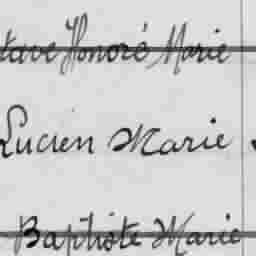 tave Honoré Marie
Lucien Marie
Baptiste Marie